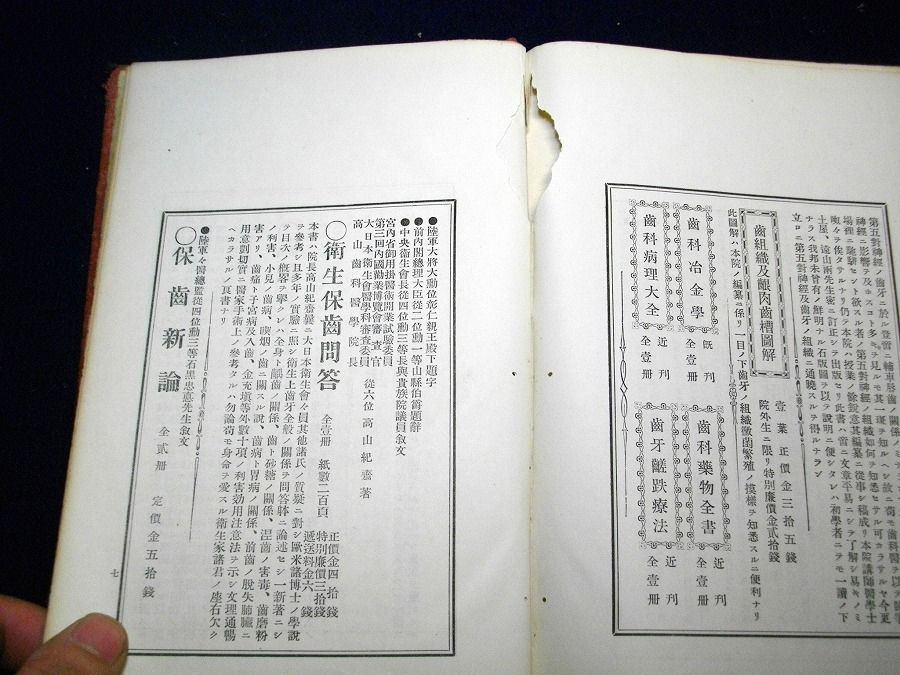 第五對神經ノ齒牙ニ於ル
神經ニ影響ヲ及スコト多キヲ見ルモ其一班ヲ知ルヘシ故ニ苟モ齒科醫ヲ以テ
場裡ニ馳騁セント欲スル者ノ第五對神經ノ組織如何ヲ知悉セサル可カラサルヤ今更
喋々ヲ俟タサルナリ仍テ本院ハ授業ノ餘銳意其編纂ニ從事シ稿成リ本院講師醫學士
土屋、遠山兩先生ニ訂正ヲ乞ヒ出版セリ此書ハ啻ニ文章平易ニシテ了解シ易キノミ
ナラス我邦未曾有ノ鮮明ナル石版圖ヲ以テ說明ニ便シタレハ初學者ニテモ一讀ノ下
立ロニ第五對神經及齒牙ノ組織ニ通曉スルヲ得ルナラン
齒組織及釀肉齒槽圖解
壹葉 正價金三拾五錢
院外生ニ限リ特別廉價金貳拾錢
此圖解ハ本院ノ編纂ニ係リ一目ノ下齒牙ノ組織黴菌繁殖ノ摸樣ヲ知悉スルニ便利ナリ
齒科冶金學 既刊 全壹册
齒科藥物全書 近刊 全壹册
齒科病理大全 近刊 全壹册
齒牙齷跌療法 近刊 全壹册
●陸軍大將大勳位彰仁親王殿下題字
●前內閣總理大臣從二位勳一等山縣伯爵題辭
●中央衛生會長從四位勳三等長與貴族院議員敘文
宮內省御用掛醫術開業試驗委員
第三回內國勸業博覽會審查官
大日本衛生會醫學科審查委員
高山齒科醫學院長
從六位 高山紀齋 著
○衛生保齒問答 全壹册 紙數二百頁
正價金四拾錢
特別廉價三拾錢
遞送料金六錢
本書ハ院長高山紀齋曩ニ大日本衛生會々員其他諸氏ノ質疑ニ對シ歐米諸博士ノ學說
ヲ參考シ且多年ノ實驗ニ照シ衛生上齒牙全般ノ關係ヲ問答躰ニ論述セシ一新著ニシ
テ目次ノ槪畧ヲ擧レハ全身ト齒ノ關係、齒ト砂糖ノ關係、涅齒ノ害毒、齒磨粉
ノ利害、小兒ノ齒病、喫烟ノ齒ニ關スル說、齒病ト胃病ノ關係、前齒ノ脫失肺臟ニ
害アリ、齒痛ト子宮病及入齒、金充塡等外數十項ノ利害効用注意法ヲ示シ文理通暢
用意剴切實ニ醫家手術上ノ參考タルハ勿論苟モ身命ヲ愛スル衛生家諸君ノ座右欠ク
ヘカラサルノ良書ナリ
●陸軍々醫總監從四位勳三等石黑忠悳先生敘文
○保齒新論 全貳册 定價金五拾錢
七